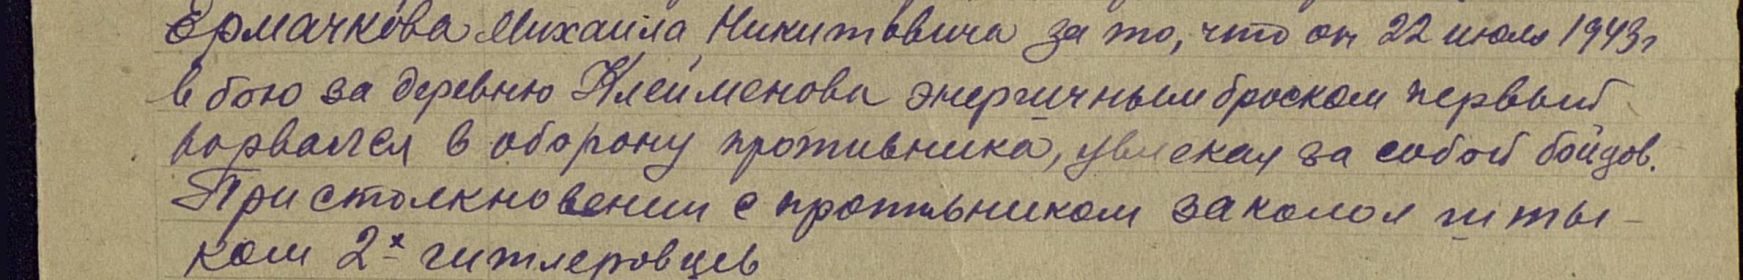 Ермачкова Михаила Никитовича за то, что он 22 июля 1943г
в бою за деревню Клейменова энергичным броском первый
ворвался в оборону противника, увлекая за собой бойцов.
При столкновении с противником заколол шты-
ком 2-х гитлеровцев